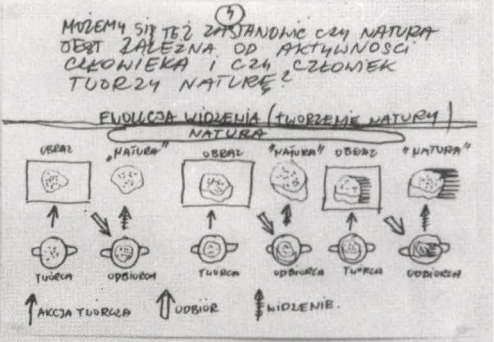 4
MOŻEMY SIĘ TEŻ ZASTANOWIĆ CZY NATURA
JEST ZALEŻNA OD AKTYWNOŚCI
CZŁOWIEKA I CZY CZŁOWIEK
TWORZY NATURĘ?
EWOLUCJA WIDZENIA (TWORZENIE NATURY)
NATURA
OBRAZ „NATURA" OBRAZ "NATURA" OBRAZ "NATURA"
TWÓRCA ODBIORCA TWÓRCA ODBIORCA TWÓRCA ODBIORCA
AKCJA TWÓRCZA ODBIÓR WIDZENIE.